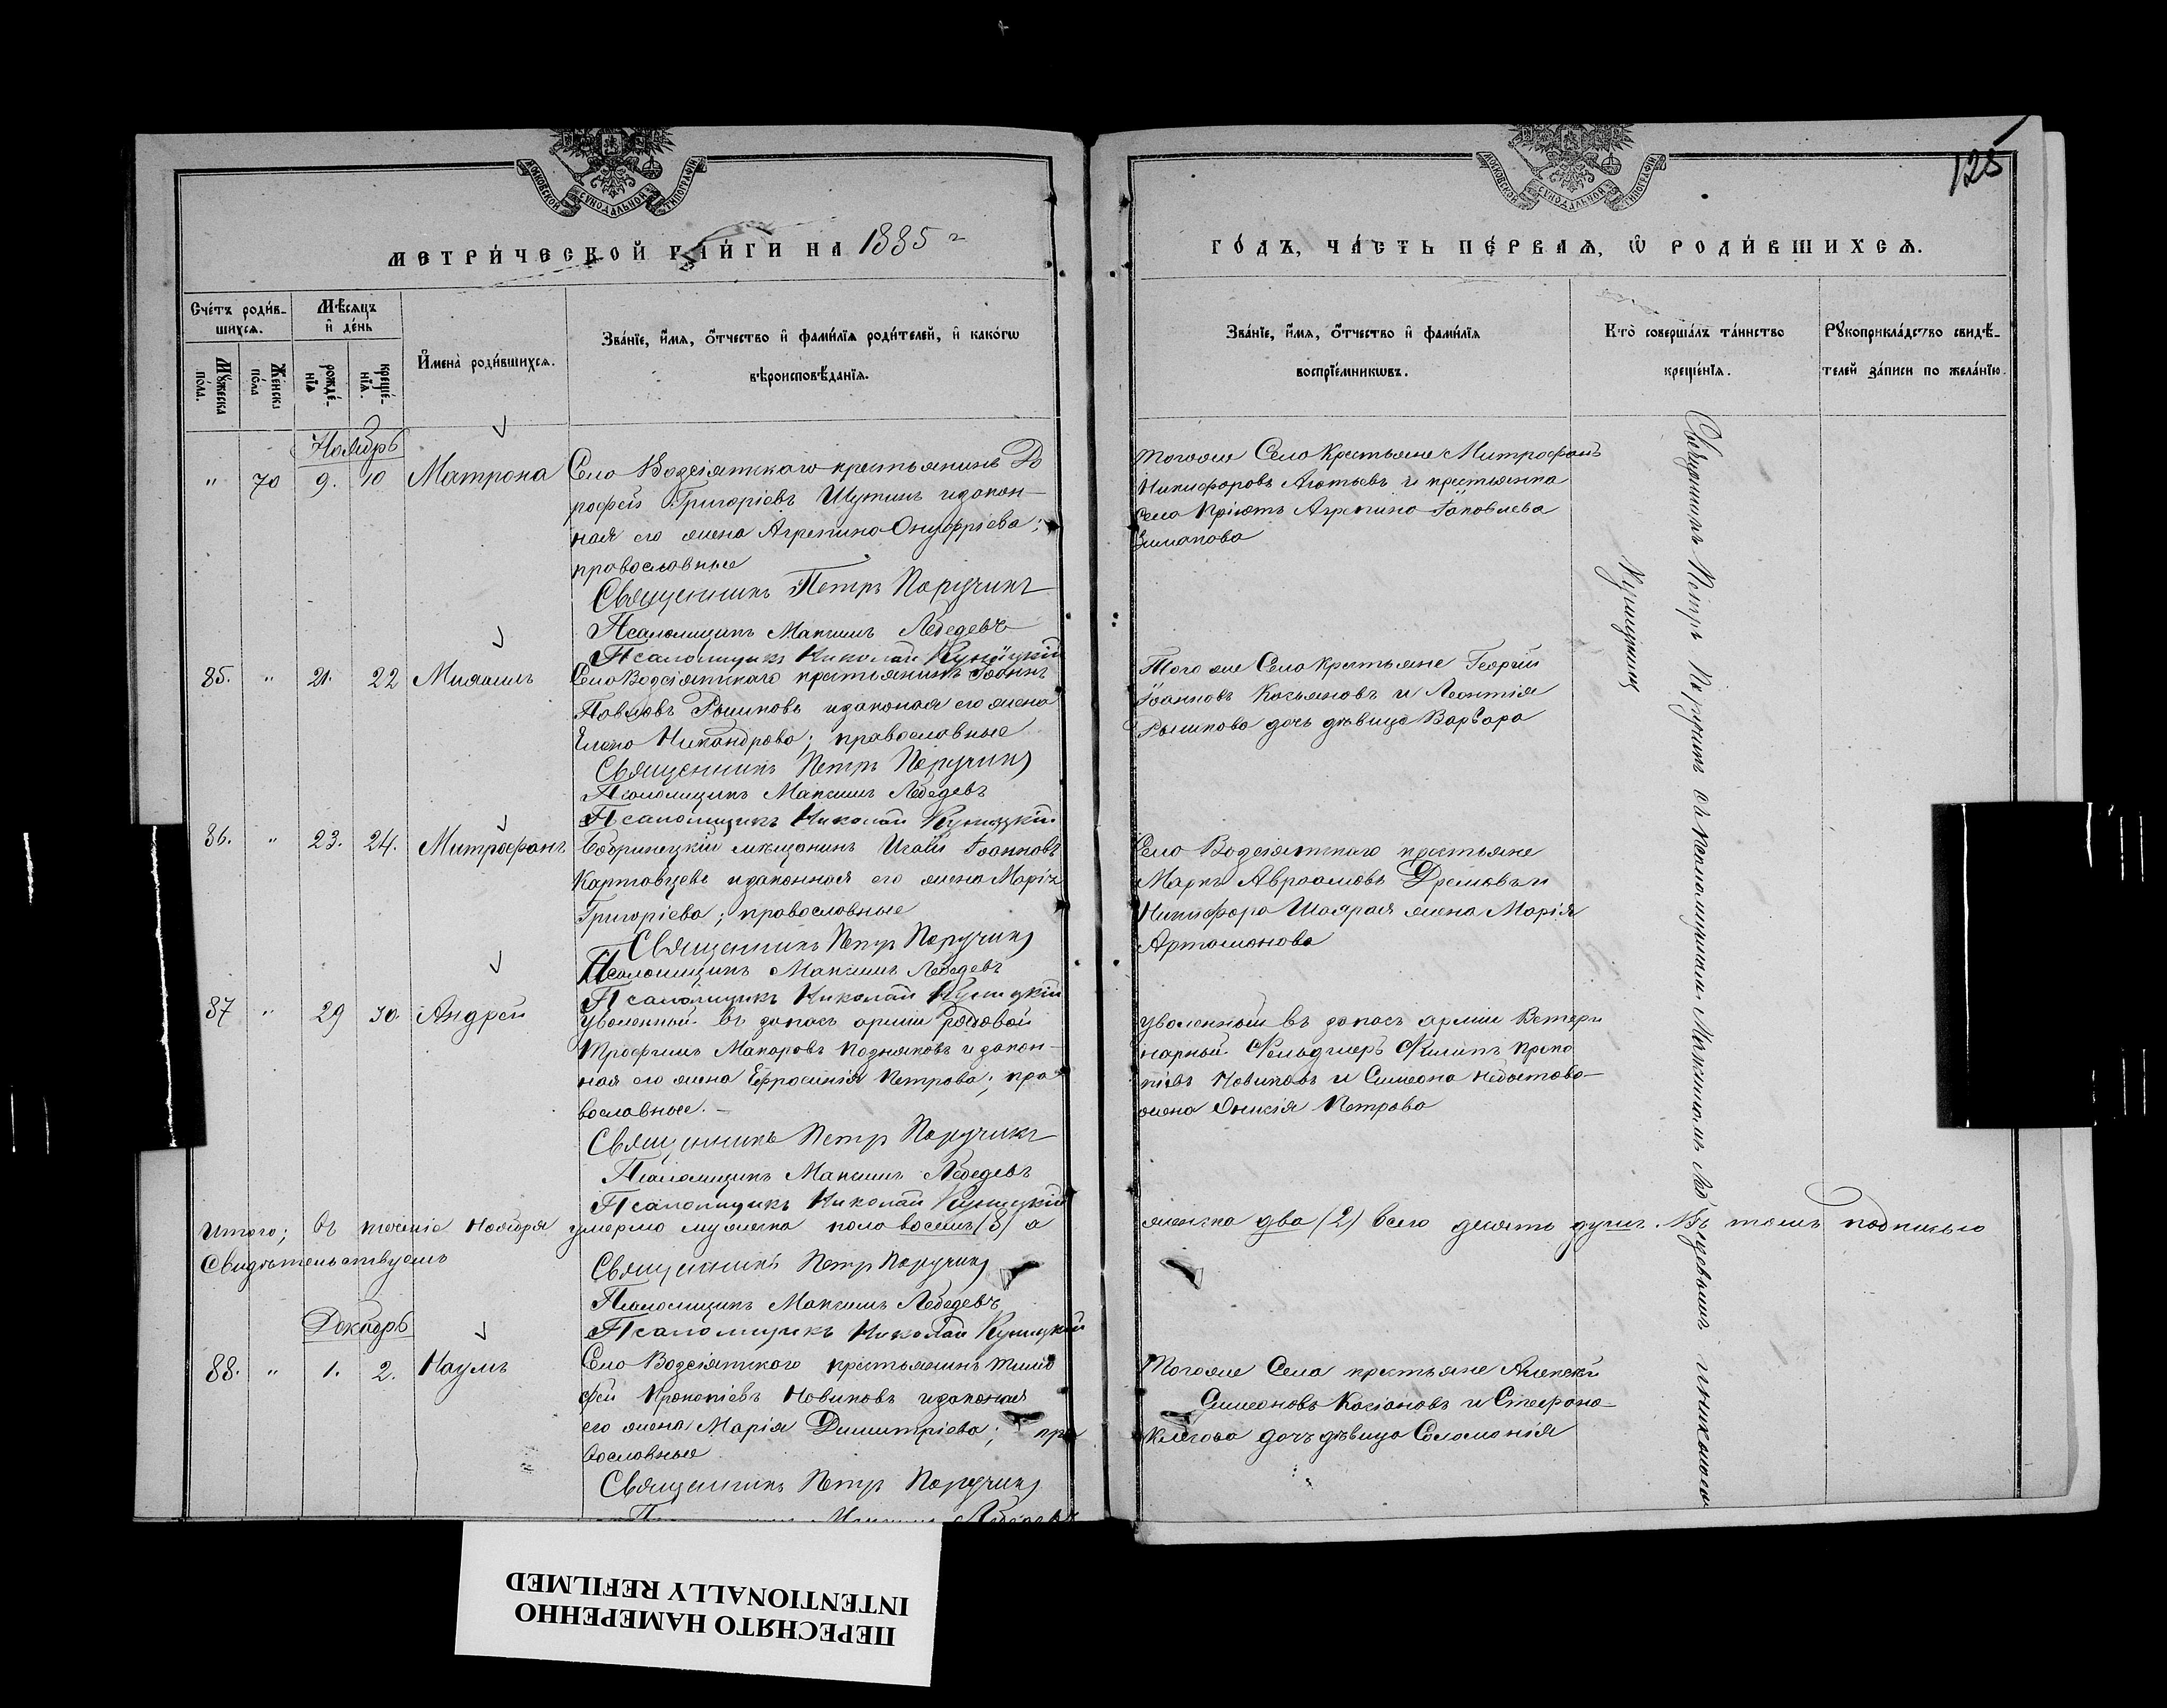 МОСКОВСКОЙ СѴНОДАЛЬНОЙ ТИПОГРАФІИ
МОСКОВСКОЙ СѴНОДАЛЬНОЙ ТИПОГРАФІИ
125
МЕТРИ́ЧЕСКОЙ КНИ́ГИ НА 1885 г
ГО́ДЪ, ЧА́СТЬ ПЕ́РВАѦ, Ѡ РОДИ́ВШИХСѦ.
Сче́тъ роди́в-
шихсѧ.
Мѣ́сѧцъ
и҆ де́нь
Мꙋжеска по́ла.
Же́нска по́ла
рожде́-нїѧ
креще́-нїѧ.
И҆мена̀ роди́вшихсѧ.
Зва́нїе, и҆́мѧ, ѻ҆́тчество и҆ фами́лїѧ роди́телей, и҆ како́гѡ
вѣроисповѣ́данїѧ.
Зва́нїе, и҆́мѧ, ѻ҆́тчество и҆ фами́лїѧ
воспрїе́мникѡвъ.
Кто̀ соверша́лъ та́инство
креще́нїѧ.
Рꙋкоприкла́дство свидѣ́-
телей за́писи по жела́нїю.
Ноябрь
" 70 9. 10 Матрона
Село Водзіятскаго крестьянинъ До
рофей Григоріевъ Шутинъ и закон-
ная его жена Агрепина Онуфріева;
православные
Священникъ Петръ Поручикъ
Псаломщикъ Максимъ Лебедевъ
Псаломщикъ Николай Куницкій
Тогоже Село Крестьяне Митрофанъ
Никифоровъ и крестьянка
Села Пріютъ Агрепина Іаковлева
85. " 21. 22 Михаилъ
Село Водзіятскаго крестьянинъ Іоаннъ
Павловъ Рышковъ и законая его жена
Елена Никандрова; православные
Священникъ Петръ Поручикъ
Псаломщикъ Максимъ Лебедевъ
Псаломщикъ Николай Куницкій
Того же Село крестьяне Георгій
Іоанновъ Касьяновъ и Леонтія
Рышкова дочь дѣвица Варвара
86. " 23. 24. Митрофанъ
Бобринецкій мѣщанинъ Іоанновъ
Картовцевъ и законная его жена Марія
Григоріева; православные
Священникъ Петръ Поручикъ
Псаломщикъ Максимъ Лебедевъ
Псаломщикъ Николай Куницкій
Село Водзіятскаго крестьяне
Маркъ Авраамовъ Дремовъ и
Никифора жена Марія
Артамонова
87 " 29 30. Андрей
Уволенный въ запасъ арміи рядовой
Трофимъ Макаровъ Поздняковъ и закон-
ная его жена Ефросинія Петрова; пра
вославные.-
Священникъ Петръ Поручикъ
Псаломщикъ Максимъ Лебедевъ
Псаломщикъ Николай Куницкій
уволенный въ запасъ арміи Ветери
нарный Фельдшеръ Филипъ Проко
піевъ Новиковъ и Симеона
жена Онисія Петрова
Итого; въ теченіе Ноября умерло мужеска пола восемь (8) а
женска два (2) всего десять душъ. Въ томъ подписью
Свидѣтельствуемъ
Священникъ Петръ Поручикъ
Псаломщикъ Максимъ Лебедевъ
Псаломщикъ Николай Куницкій
Декабрь
88. " 1. 2. Наумъ
Село Водзіятского крестьянинъ Тимо
фей Прокопіевъ Новиковъ и законая
его жена Марія Димитріева; пра
вославные
Священникъ Петръ Поручикъ
Тогоже Села крестьяне Алексѣй
Симеоновъ Касіановъ и Стефана
дочь дѣвица Соломонія
Священникъ Петръ Поручикъ съ Псаломщиками Максимомъ Лебедевымъ и Николаемъ
Куницкимъ
ПЕРЕСНЯТО НАМЕРЕННО
INTENTIONALLY REFILMED